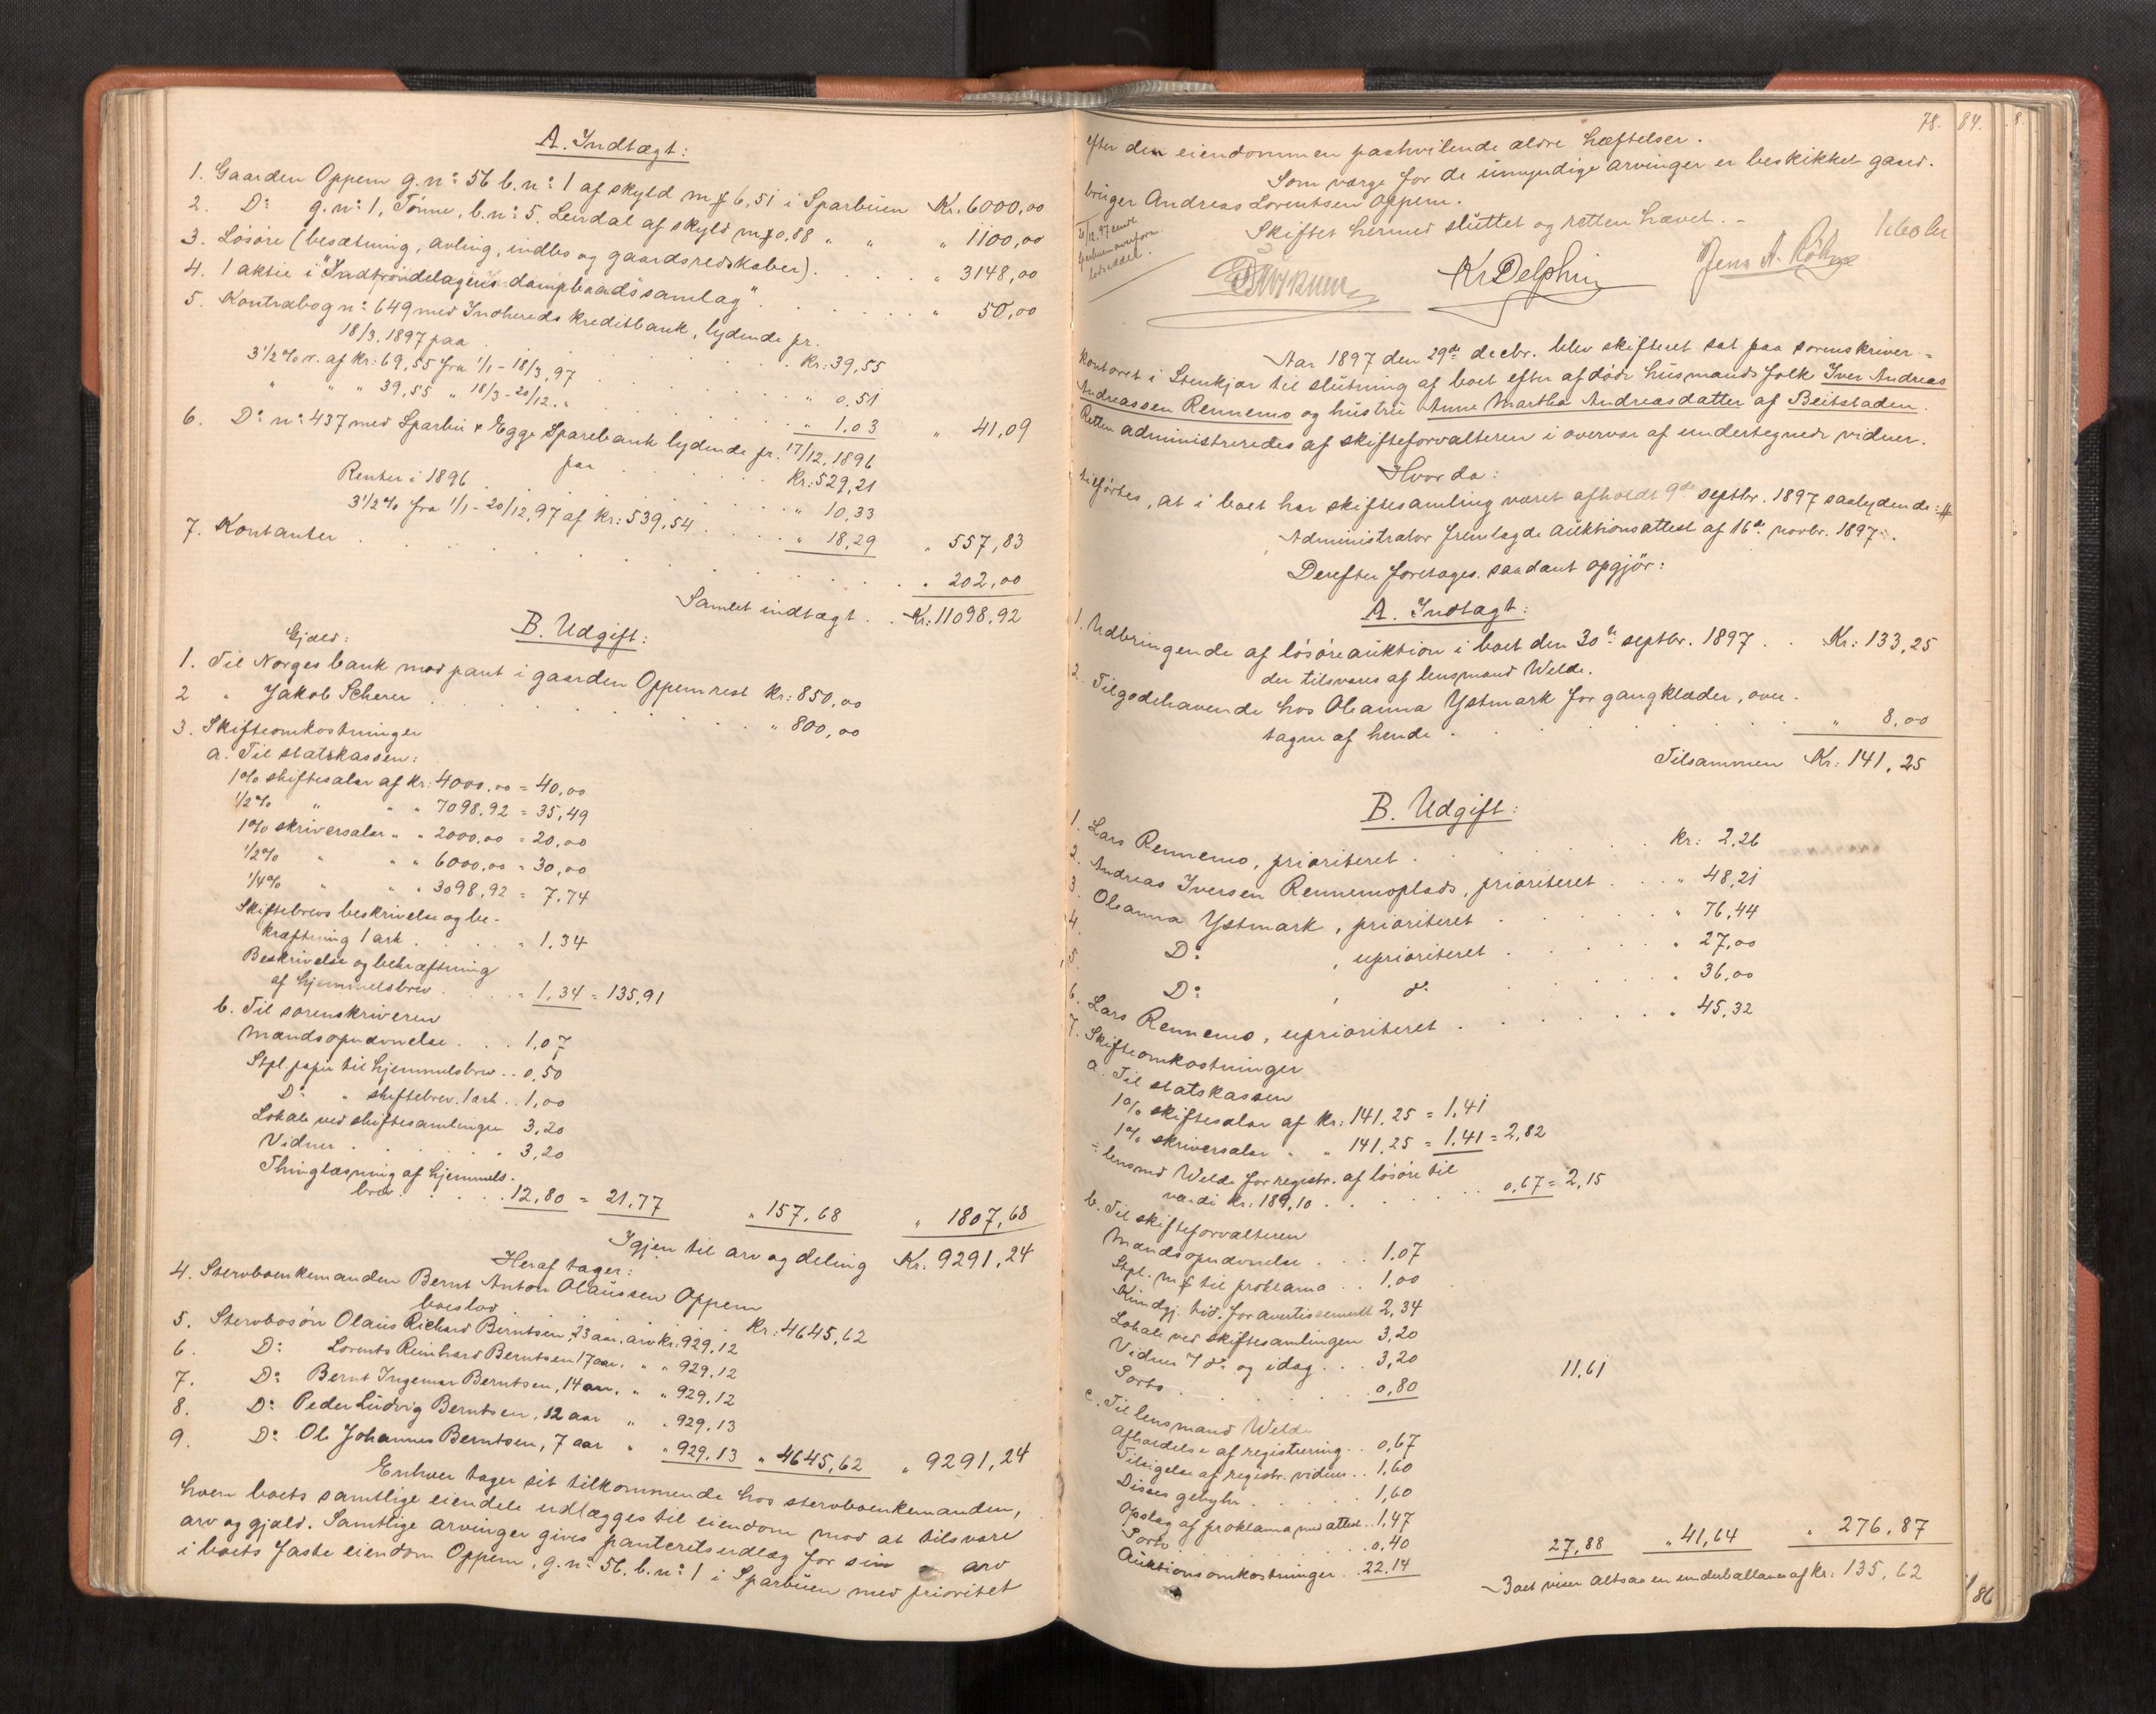 A. Indtægt:
1. Gaarden Oppem g.n: 56 b.n: 1 af skyld m# 6,51 i Sparbuen Kr. 6000,00
2. D: g.n: 1, Tønne, b.n: 5. Leirdal af skyld m# 0,88 " " " 1100,00
3. Løsøre (besætning, avling, indbo og gaardsredskaber) . . . " 3148,00
4. 1 aktie i "Indtrøndelagens dampbaadssamlag" . . . " 50,00
5. Kontrabog n: 649 med Indhereds kreditbank, lydende pr.
18/3. 1897 paa . . . Kr: 39,55
3 1/2 % r. af kr: 69,55 fra 1/1 - 18/3, 97 . . . " 0,51
" " " 39,55 " 18/3 - 20/12 . " . . . " 1,03 " 41,09
6. D: n: 437 med Sparbu & Egge Sparebank lydende pr. 17/12, 1896
paa . . . Kr: 529,21
Renter i 1896 . . . " 10,33
3 1/2 % fra 1/1 - 20/12, 97 af kr: 539,54 . . . " 18,29 " 557,83
7. Kontanter . . . " 202,00
Samlet indtægt . . Kr: 11098,92
B. Udgift:
Gjæld:
1. Til Norges bank mod pant i gaarden Oppem rest Kr: 850,00
2 " Jakob Scherer . . . " 800,00
3. Skifteomkostninger
a. Til statskassen:
1% skiftesalær af kr: 4000,00 = 40,00
1/2% " " " 7098,92 = 35,49
1% skriversalær " " 2000,00 = 20,00
1/2% " " " 6000,00 = 30,00
1/4% " " " 3098,92 = 7,74
Skiftebrevs beskrivelse og be-
kræftning 1 ark . . . " 1,34
Beskrivelse og bekræftning
af hjemmelsbrev . . . " 1,34 = 135,91
b. Til sorenskriveren
Mandsopudvnelse . . . 1,07
Stpl. papir til hjemmelsbrev . . 0,50
D: " skiftebrev. 1 ark . . 1,00
Lokale ved skiftesamlingen 3,20
Vidner . . . 3,20
Thinglæsning af hjemmels-
brev . . . 12,80 = 21,77 " 157,68 " 1807,68
Igjen til arv og deling Kr. 9291,24
Heraf tager:
4. Stervboenkemanden Bernt Anton Olaussen Oppem
boeslod Kr: 4645,62
5. Stervbosøn Olaus Richard Berntsen, 23 aar, arv kr: 929,12
6. D: Lorents Reinhard Berntsen 17 aar, " " 929,12
7. D: Bernt Ingemar Berntsen, 14 aar, " " 929,12
8. D: Peder Ludvig Berntsen, 12 aar " " 929,13
9. D: Ole Johannes Berntsen, 7 aar " " 929,13 " 4645,62 " 9291,24
Enhver tager sit tilkommende hos stervboenkemanden,
hvem boets samtlige eiendele udlægges til eiendom mod at tilsvare
arv og gjæld. Samtlige arvinger gives panteretsudlæg for sin arv
i boets faste eiendom Oppem, g.n: 56, b.n: 1 i Sparbuen med prioritet
78. 84. 8
efter den eiendommen paahvilende ældre hæftelser.
Som værge for de umyndige arvinger er beskikket gaard-
bruger Andreas Lorentsen Oppem.
Skiftet hermed sluttet og retten hævet. -
Kr Delphin
Aar 1897 den 29de decbr. blev skifteret sat paa sorenskriver-
kontoret i Stenkjær til slutning af boet efter afdøde husmandsfolk Iver Andreas
Andreassen Rennemo og hustru Anne Martha Andreasdatter af Beitstaden.
Retten administreredes af skifteforvalteren i overvær af undertegnede vidner.
Hvorda:
tilførtes, at i boet har skiftesamling været afholdt 9de septbr. 1897 saalydende: #
Administrator fremlagde auktionsattest af 16de novbr. 1897.
Derefter foretages saadant opgjør:
A. Indtægt:
1. Udbringende af løsøreauktion i boet den 30te septbr. 1897 . . Kr: 133,25
der tilsvares af lensmand Welde.
2. Tilgodehavende hos Oleanna Ystmark for gangklæder, over-
tagne af hende . . . " 8,00
Tilsammen Kr: 141,25
B. Udgift:
1. Lars Rennemo, prioriteret . . . Kr: 2,26
2. Andreas Iversen Rennemoplads, prioriteret . . . " 48,21
3. Oleanna Ystmark, prioriteret . . . " 76,44
4. D: , uprioriteret . . . " 27,00
5. D: , d: . . . " 36,00
6. Lars Rennemo, uprioriteret . . . " 45,32
7. Skifteomkostninger
a. Til statskassen
1% skiftesalær af kr: 141,25 = 1,41
1% skriversalær " " 141,25 = 1,41 = 2,82
÷ lensmd Welde for registr. af løsøre til
værdi kr: 189,10 . . . 0,67 = 2,15
b. Til skifteforvalteren
Mandsopudvnelse . . . 1,07
Stpl. m# til proklama . . 1,00
Kundgj. tid. for avertissement 2,34
Lokale ved skiftesamlingen 3,20
Vidner 7 d: og idag . . . 3,20
Porto . . . 0,80 11,61
c. Til lensmand Welde
Afholdelse af registrering . . 0,67
Tilsigelse af registr. vidner . . 1,60
Disses gebyhr . . . 1,60
Opslag af proklama med attest . . 1,47
Porto . . . 0,40
Auktionsomkostninger . . 22,14 27,88 " 41,64 " 276,87
Boet viser altsaa en underballance af kr: 135,62
86